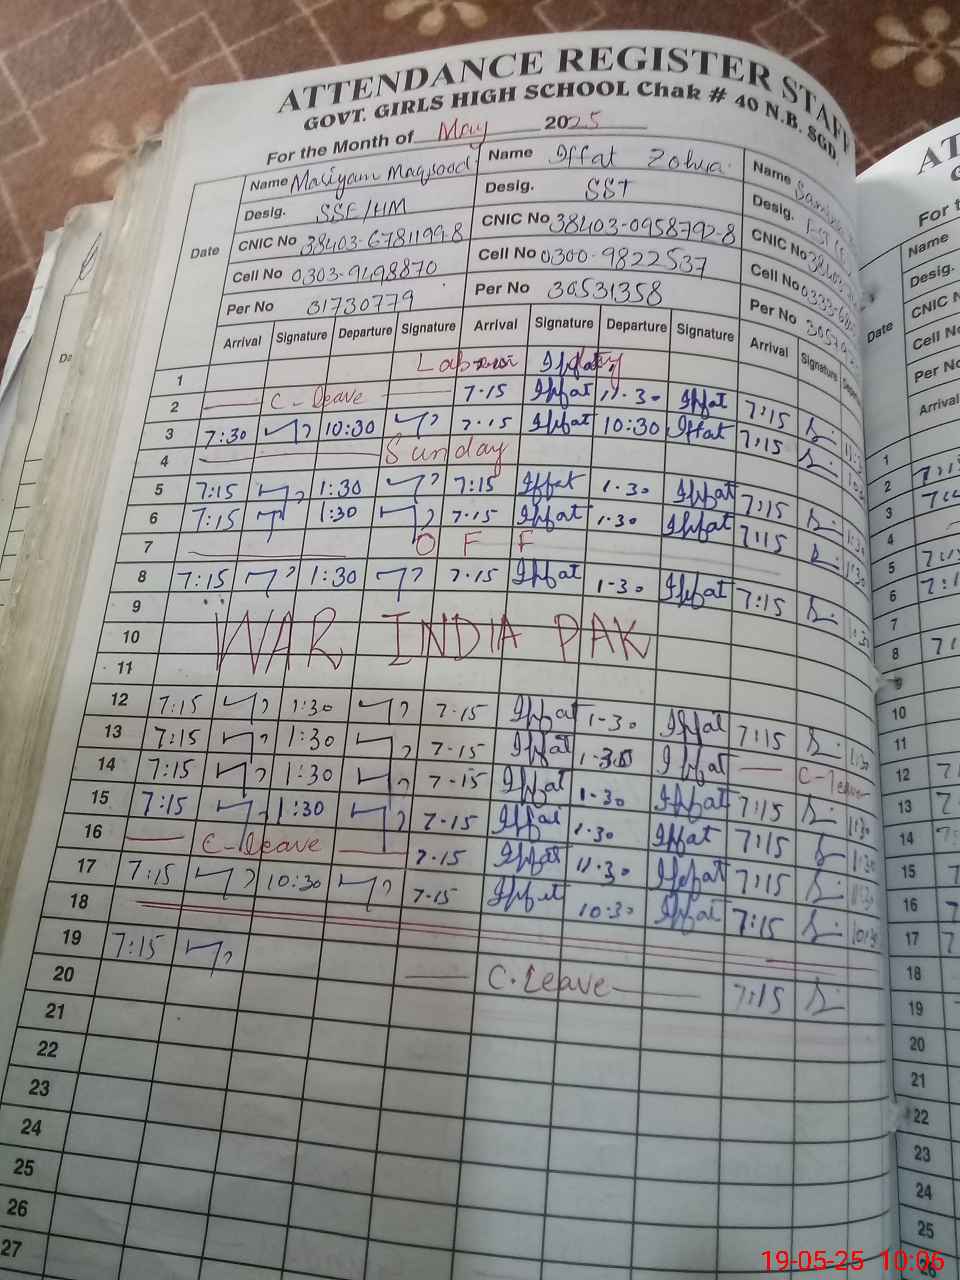 ATTENDANCE REGISTER STAFF
GOVT. GIRLS HIGH SCHOOL Chak # 40 N.B. SGD
For the Month of May 2025
Date
Name Mariyam Maqsood Name Iffat Zohra Name
Desig. SSE/HM Desig. SST Desig.
CNIC No 38403-6781199-8 CNIC No 38403-0958792-8 CNIC No
Cell No 0303-9498870 Cell No 0300-9822537 Cell No
Per No 31730779 Per No 30531358 Per No
Arrival Signature Departure Signature Arrival Signature Departure Signature Arrival Signature
1 Labour Iffat day
2 C-leave 7-15 Iffat 11-30 Iffat 7:15
3 7:30 10:30 7-15 Iffat 10:30 Iffat 7:15
4 Sunday
5 7:15 1:30 7:15 Iffat 1-30 Iffat 7:15
6 7:15 1:30 7-15 Iffat 1-30 Iffat 7:15
7 O F F
8 7:15 1:30 7-15 Iffat 1-30 Iffat 7:15
9
10 WAR INDIA PAK
11
12 7:15 1:30 7-15 Iffat 1-30 Iffat 7:15 1:30
13 7:15 1:30 7-15 Iffat 1-30 Iffat C-leave
14 7:15 1:30 7-15 Iffat 1-30 Iffat 7:15 1:30
15 7:15 1:30 7-15 Iffat 1-30 Iffat 7:15 1:30
16 C-Leave 7-15 Iffat 11-30 Iffat 7:15
17 7:15 10:30 7-15 Iffat 10-30 Iffat 7:15 10:30
18
19 7:15 C.Leave 7:15
20
21
22
23
24
25
26
27
Date
Name
Desig.
CNIC No
Cell No
Per No
Arrival
1
2
3
4
5
6
7
8
9
10
11
12
13
14
15
16
17
18
19
20
21
22
23
24
25
26
19-05-25 10:06